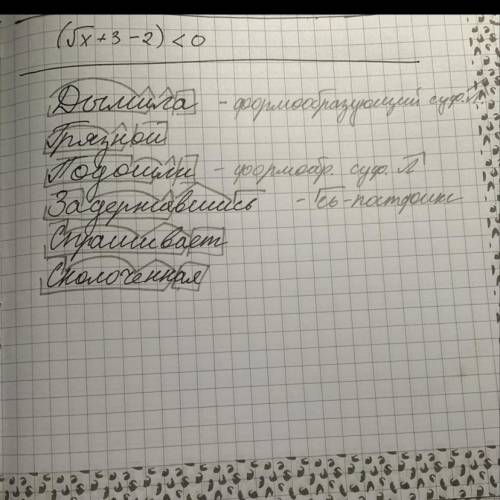 (√x + 3 - 2) < 0
Дымила - формообразующий суф. Л
Грязной
Подошли - формообр. суф. Л
Задержавшись - сь - постфикс
Спрашивает
Сколоченная